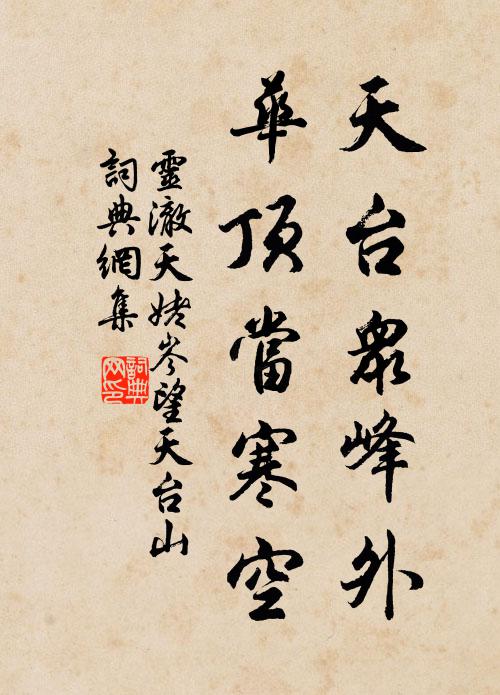 天台眾峰外
華頂當寒空
靈澈天姥岑望天台山
詞典網集
詞典
网印